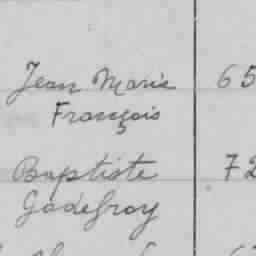 Jean Marie 65
François
Baptiste 72
Godefroy